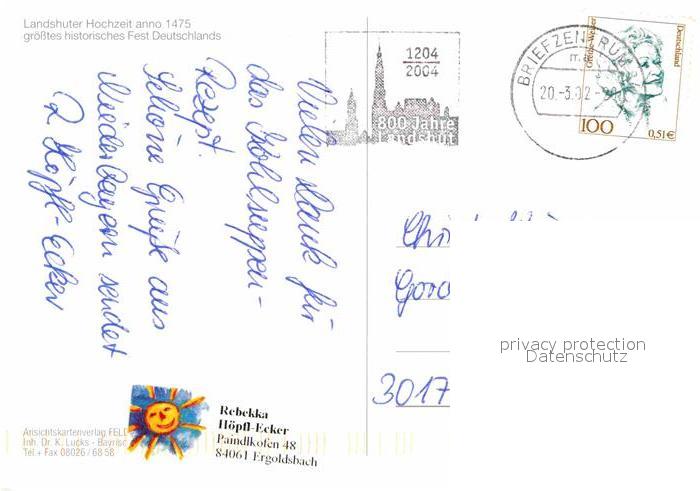 Landshuter Hochzeit anno 1475
größtes historisches Fest Deutschlands
1204
2004
800 Jahre
Landshut
BRIEFZENTRUM
20.-3.02
Deutschland
100
0,51€
Vielen Dank für
das Kohlsuppen-
Rezept.
Schöne Grüße aus
Niederbayern sendet
R. Höpfl-Ecker
3017
privacy protection
Datenschutz
Rebekka
Höpfl-Ecker
Paindlkofen 48
84061 Ergoldsbach
Ansichtskartenverlag
Inh. Dr. K. Lucks -
Tel + Fax 08026 / 68 58